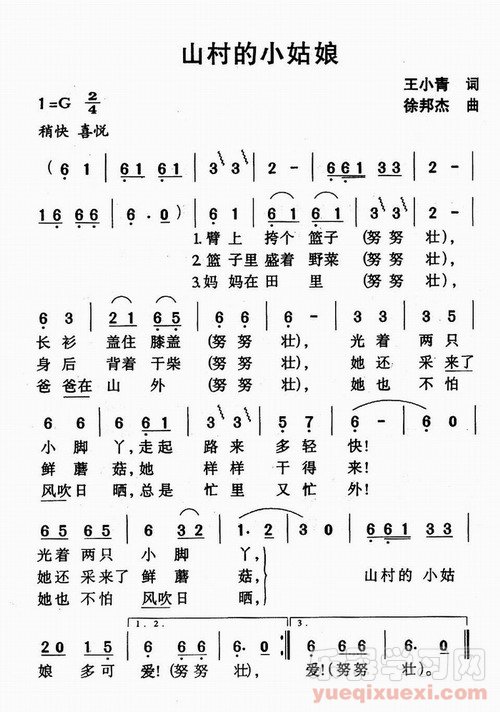 山村的小姑娘
王小青 词
1=G 2/4
徐邦杰 曲
稍快 喜悦
( 6 1 | 61 61 | 3 3 | 2 - | 6 661 33 | 2 - |
16 66 | 6·0 ) | 6 1 | 61 61 | 3 3 | 2 - |
1.臂上 挎个 篮子 (努 努 壮),
2.篮子里 盛着 野菜 (努 努 壮),
3.妈妈在 田 里 (努 努 壮),
6 3 | 21 65 | 3 3 | 6 - | 6 66 | 12 33 |
长衫 盖住 膝盖 (努 努 壮), 光着 两只
身后 背着 干柴 (努 努 壮), 她还 采来了
爸爸在 山 外 (努 努 壮), 她也 不怕
6 6 | 6 61 | 3 3 | 5 7 | 6 - | 6 0 |
小脚 丫,走起 路来 多轻 快!
鲜蘑 菇,她 样样 干得 来!
风吹日 晒,总是 忙里 又忙 外!
65 65 | 6 32 | 1·2 | 3 0 | 6 6 | 661 33 |
光着 两只 小脚 丫,
她还 采来了 鲜蘑 菇, 山村的 小姑
她也 不怕 风吹日 晒,
1. 2. 3.
20 105 | 6 66 | 6·0 :| 6 66 | 6·0 |
娘 多可 爱!(努努 壮), 爱!(努努 壮)。
乐器学习网
yueqixuexi.com